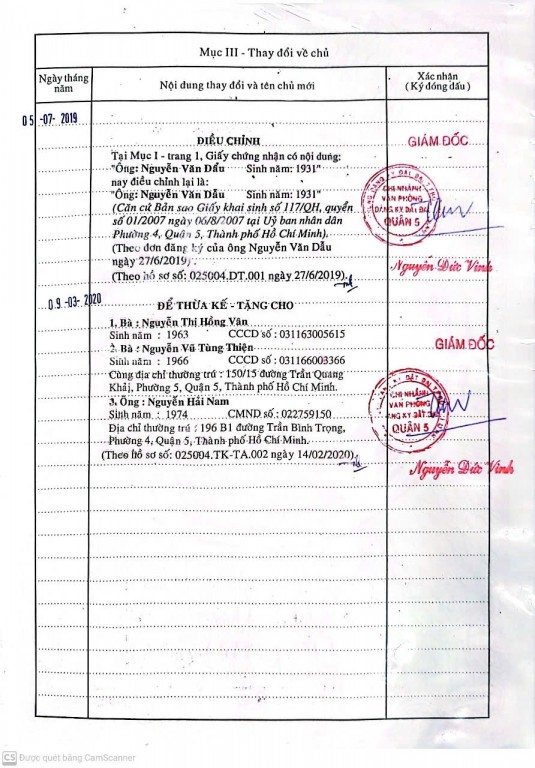 Mục III - Thay đổi về chủ
Ngày tháng năm
Nội dung thay đổi và tên chủ mới
Xác nhận
(Ký đóng dấu)
05-07-2019
ĐIỀU CHỈNH
GIÁM ĐỐC
Tại Mục I - trang 1, Giấy chứng nhận có nội dung:
"Ông: Nguyễn Văn Dấu Sinh năm: 1931"
nay điều chỉnh lại là:
"Ông: Nguyễn Văn Dẫu Sinh năm: 1931"
(Căn cứ Bản sao Giấy khai sinh số 117/QH, quyển
số 01/2007 ngày 06/8/2007 tại Uỷ ban nhân dân
Phường 4, Quận 5, Thành phố Hồ Chí Minh).
(Theo đơn đăng ký của ông Nguyễn Văn Dẫu
ngày 27/6/2019)
(Theo hồ sơ số: 025004.DT.001 ngày 27/6/2019).
CHI NHÁNH
VĂN PHÒNG
ĐĂNG KÝ ĐẤT ĐAI
QUẬN 5
Nguyễn Đức Vinh
09-03-2020
ĐỂ THỪA KẾ - TẶNG CHO
GIÁM ĐỐC
1. Bà : Nguyễn Thị Hồng Vân
Sinh năm : 1963 CCCD số : 031163005615
2. Bà : Nguyễn Vũ Tùng Thiện
Sinh năm : 1966 CCCD số : 031166003366
Cùng địa chỉ thường trú : 150/15 đường Trần Quang
Khải, Phường 5, Quận 5, Thành phố Hồ Chí Minh.
3. Ông : Nguyễn Hải Nam
Sinh năm : 1974 CMND số : 022759150
Địa chỉ thường trú : 196 B1 đường Trần Bình Trọng,
Phường 4, Quận 5, Thành phố Hồ Chí Minh.
(Theo hồ sơ số: 025004.TK-TA.002 ngày 14/02/2020).
CHI NHÁNH
VĂN PHÒNG
ĐĂNG KÝ ĐẤT ĐAI
QUẬN 5
Nguyễn Đức Vinh
CS Được quét bằng CamScanner